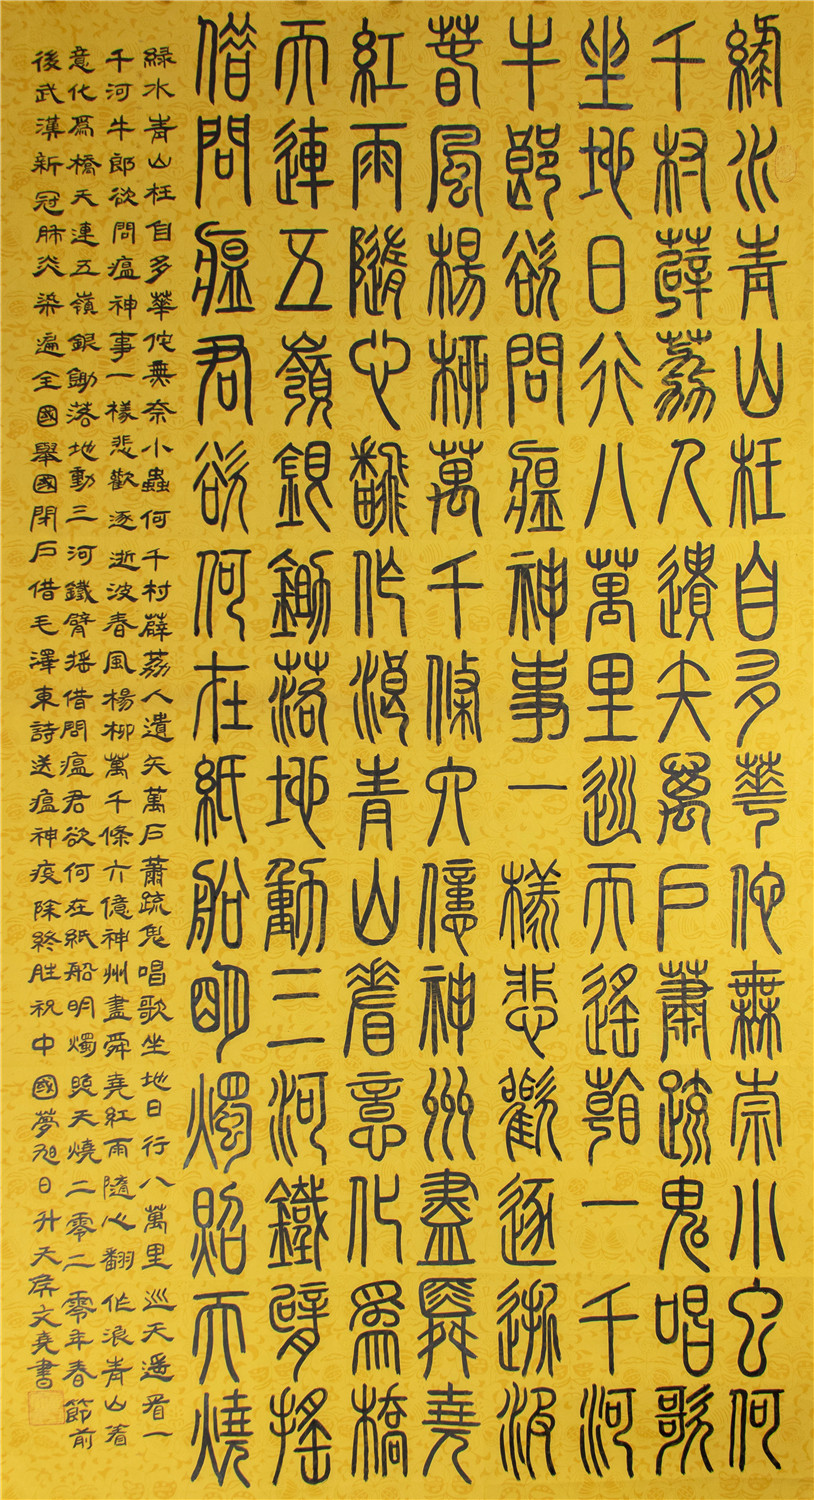 綠水青山枉自多華佗無奈小虫何
千村薜荔人遺矢萬戶蕭疏鬼唱歌
坐地日行八萬里巡天遙看一千河
牛郎欲問瘟神事一樣悲歡逐逝波
春風楊柳萬千條六億神州盡舜堯
紅雨隨心翻作浪青山着意化爲橋
天連五嶺銀鋤落地動三河鐵臂搖
借問瘟君欲何在紙船明燭照天燒
綠水青山枉自多華佗無奈小蟲何千村薜荔人遺矢萬戶蕭疏鬼唱歌坐地日行八萬里巡天遥看一
千河牛郎欲問瘟神事一樣悲歡逐逝波春風楊柳萬千條六億神州盡舜堯紅雨隨心翻作浪青山着
意化爲橋天連五嶺銀鋤落地動三河鐵臂摇借問瘟君欲何在紙船明燭照天燒二零二零年春節前
後武漢新冠肺炎染遍全國舉國閉戶借毛澤東詩送瘟神疫除終胜祝中國夢旭日升天侯文堯書